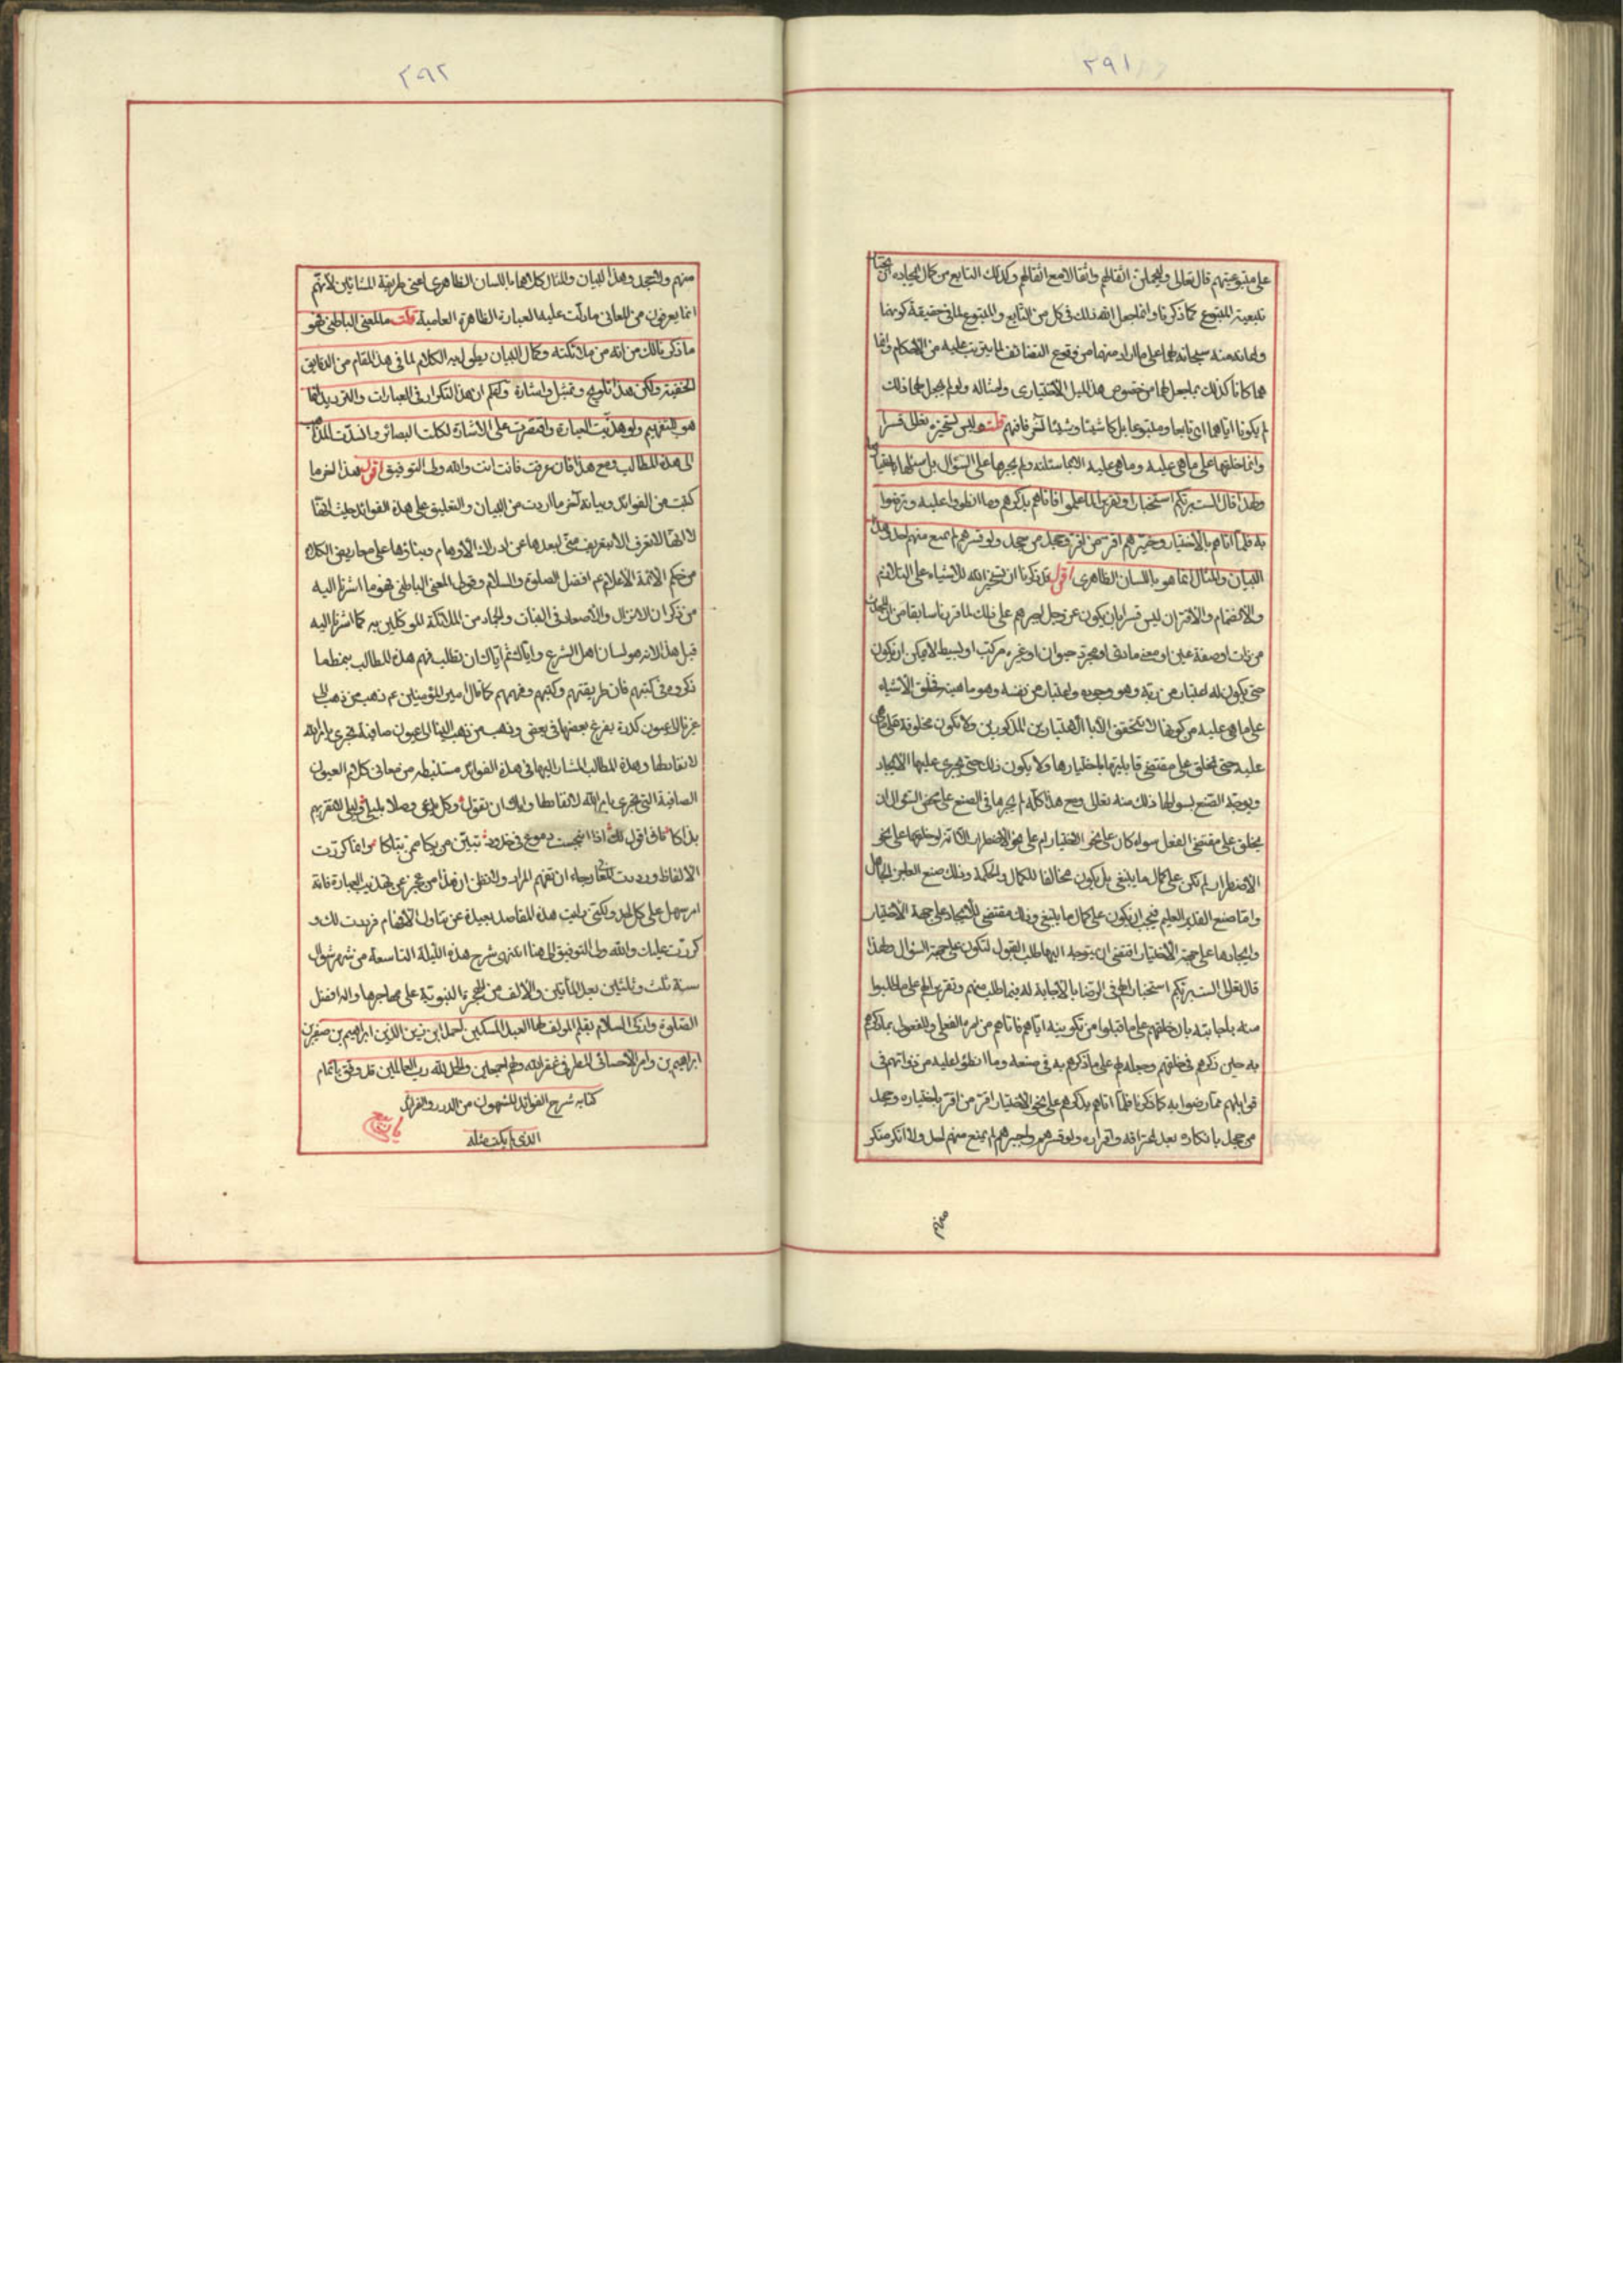 ٢٩١
على متبوعيتهم قال تعالى وليحملن اثقالهم واثقالا مع اثقالهم وكذلك التابع من كمال ايجاده ان
تبعية المتبوع كما ذكرنا وانما جعل الله ذلك في كل من التابع والمتبوع لما في حقيقة كونهما
منه سبحانه لهما على ما اراد منهما من وقوع التضائف لما يترتب عليه من الاحكام وانما
هما كانا كذلك بما جعل لهما من خصوص هذا الميل الاختياري وامثاله ولو لم يجعل لهما ذلك
لم يكونا اياهما اي تابعا ومتبوعا بل كانا شيئا وشيئا آخر فافهم قلت وليس تسخيره تعالى قسرا
وانما خلقها على ما هي عليه وما هي عليه الا بما سئلته ولم يجبرها على السؤال بل سئلها
ولهذا قال الست بربكم استخبارا وتقريرا لما علموا فاتاهم بذكرهم وما انطووا عليه ورضوا
به فلما اتاهم بالاختيار وخيرهم اقر من اقر وجحد من جحد ولو قسرهم لم يمنع منهم احد وهذا
البيان والمثال انما هو باللسان الظاهري اقول قد ذكرنا ان تسخير الله للاشياء على التلائم
والانضمام والاقتران ليس قسرا بان يكون عز وجل اجبرهم على ذلك لما قررنا سابقا من ان
من ذات او صفة عين او معنى مادي او مجرد حيوان او غيره مركب او بسيط لا يمكن ان يكون
حتى يكون له اعتبار من ربه وهو وجوده واعتبار من نفسه وهو ماهيته فخلق الاشياء
على ما هي عليه من كونها لا تتحقق الا بالاعتبارين المذكورين ولا تكون مخلوقة على ما هي
عليه حتى يخلق على مقتضى قابليتها باختيارها ولا يكون ذلك حتى يجري عليها الايجاد
ويوجد الصنع بسؤالها ذلك منه تعالى ومع هذا كله لم يجبرها في الصنع على محض السؤال بان
يخلق على مقتضى الفعل سواء كان على نحو الاختيار ام على نحو الاضطرار لانه لو خلقها على نحو
الاضطرار لم تكن على كمال ما ينبغي بل يكون مخالفا للكمال والحكمة وذلك صنع العاجز الجاهل
واما صنع القدير العليم فيجب ان يكون على كمال ما ينبغي وذلك مقتضى للايجاد على جهة الاختيار
وايجادها على جهة الاختيار اقتضى ان يتوجه اليها طلب القبول لتكون على جهة السؤال ولهذا
قال تعالى الست بربكم استخبارا لهم في الرضا بالاجابة له فيما طلب منهم وتقريرا لهم على ما طلبوا
منه باجابته بان خلقهم على ما قبلوا من تكوينه اياهم فاتاهم من امره الفعلي والمفعولي بما ذكرهم
به حين ذكرهم في خلقهم وجعله لهم على ما ذكرهم به في صنعه وما انطووا عليه من ذواتهم في
قوابلهم مما رضوا به كما ذكرنا فلما اتاهم بذكرهم على نحو الاختيار اقر من اقر باختياره وجحد
من جحد بانكاره بعد اعترافه واقراره ولو قسرهم واجبرهم لم يمنع منهم احد ولا انكر منكر
منهم
٢٩٢
منهم ولا جحد وهذا البيان والمثال كلاهما باللسان الظاهري اعني طريقة المشائين لانهم
انما يعرفون من المعاني ما دلت عليه العبارة الظاهرة العامية قلت واما المعنى الباطني فهو
ما ذكرنا لك من انه من ملائكته وكمال البيان يطول به الكلام لما في هذا المقام من الدقايق
الخفية ولكن هذا تلويح وتمثيل واشارة واعلم ان هذا التكرار في العبارات والترديد انما
هو للتفهيم ولو هذبت العبارة واقتصرت على الاشارة لكلت البصائر وانسدت المذاهب
الى هذه المطالب ومع هذا فان عرفت فانت انت والله ولي التوفيق اقول هذا اخر ما
كتبت من الفوائد وبيانه آخر ما اردت من البيان والتعليق على هذه الفوائد حيث انها
لانها لا تعرف الا بتعريف مني لبعدها عن ادراك الاوهام وبناؤها على مجاريض الكلام
من حكم الائمة الاعلام عم افضل الصلوة والسلام وقولي المعنى الباطني فهو ما اشرنا اليه
من ذكر ان الانزال والاصعاد في النبات والجماد من الملائكة الموكلين به كما اشرنا اليه
قبل هذا لانه هو لسان اهل الشرع واياك ثم اياك ان تطلب فهم هذه المطالب بنمط ما
ذكروه في كتبهم فان طريقتهم وكتبهم وفهمهم كما قال امير المؤمنين عم ذهب من ذهب الى
غيرنا الى عيون كدرة يفرغ بعضها في بعض وذهب من ذهب الينا الى عيون صافية تجري بامر الله
لا نفاد لها وهذه المطالب المشار اليها في هذه الفوائد مستنبطة من معاني كلام العيون
الصافية التي تجري بامر الله لا نفاد لها واياك ان تقول وكل يدعي وصلا بليلى وليلى لا تقر لهم
بذاكا فاني اقول لك اذا انبجست دموع في خدود تبين من بكا ممن تباكا وانما كررت
الالفاظ ورددت رجاء ان تفهم المراد ولا تظن ان هذا من عجز عن تهذيب العبارة فانه
امر سهل على كل احد ولكني رايت هذه المقاصد بعيدة عن تناول الافهام فرددت لك و
كررت عليك والله ولي التوفيق الى هنا انتهى شرح هذه الليلة التاسعة من شهر شوال
سنة ثلث وثلثين بعد المأتين والالف من الهجرة النبوية على مهاجرها واله افضل
الصلوة وازكى السلام بقلم المؤلف لها العبد المسكين احمد بن زين الدين ابراهيم بن صقر بن
ابراهيم بن داغر الاحسائي المطرفي غفر الله لهم اجمعين والحمد لله رب العالمين قد وفق باتمام
كتابه شرح الفوائد المشحون من الدرر والفرائد
الذي لم يكتب مثله